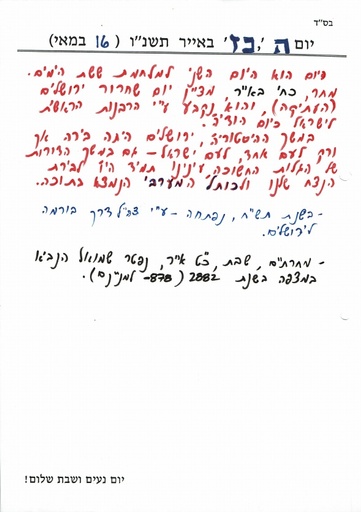 בס"ד
יום ה', כז' באייר תשנ"ו (16 במאי)
היום הוא היום השני למלחמת ששת הימים.
מחר, כח' באייר, מציין יום שחרור ירושלים
(העתיקה), והוא נקבע ע"י הרבנות הראשית
לישראל כיום הודיה.
במשך ההיסטוריה, ירושלים היתה בירה אך
ורק לעם אחד, לעם ישראל - גם במשך הדורות
של הגלות החשוכה עינינו תמיד היו לבירת
הנצח שלנו ולכותל המערבי הנמצא בתוכה.
- בשנת תש"ח, נפתחה - ע"י צה"ל דרך בורמה
לירושלים.
- מחרתיים, שבת, כ"ט אייר, נפטר שמואל הנביא
במצפה בשנת 2882 (878- למנינם).
יום נעים ושבת שלום!